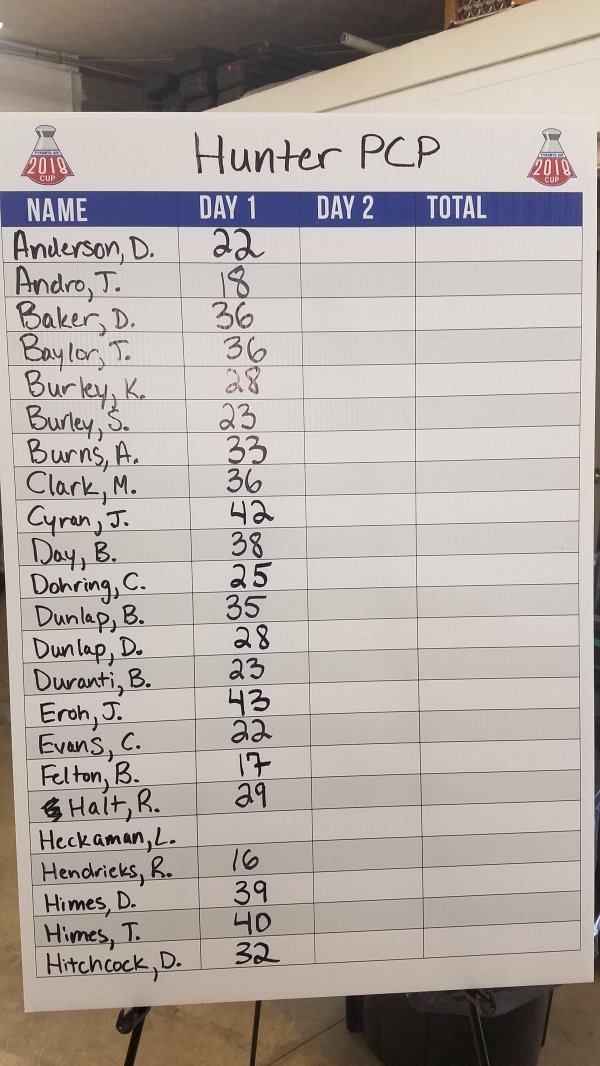 Hunter PCP
PYRAMYD AIR
2018
CUP
PYRAMYD AIR
2018
CUP
NAME DAY 1 DAY 2 TOTAL
Anderson, D. 22
Andro, T. 18
Baker, D. 36
Baylor, T. 36
Burley, K. 28
Burley, S. 23
Burns, A. 33
Clark, M. 36
Cyran, J. 42
Day, B. 38
Dohring, C. 25
Dunlap, B. 35
Dunlap, D. 28
Duranti, B. 23
Eroh, J. 43
Evans, C. 22
Felton, B. 17
Halt, R. 29
Heckaman, L.
Hendricks, R. 16
Himes, D. 39
Himes, T. 40
Hitchcock, D. 32